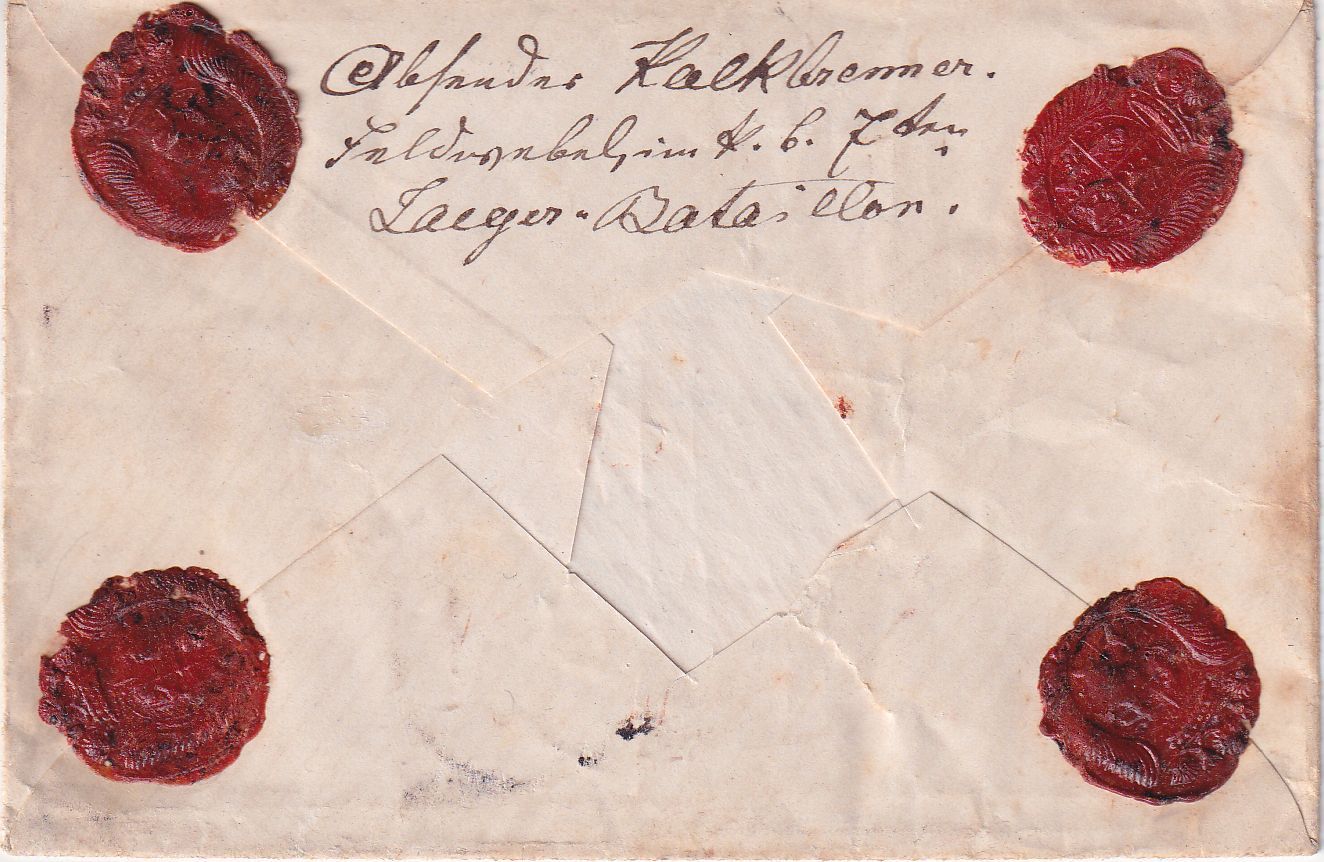 Absender Kalkbrenner.
Feldwebel, im k. b. 7ten
Jaeger-Bataillon.